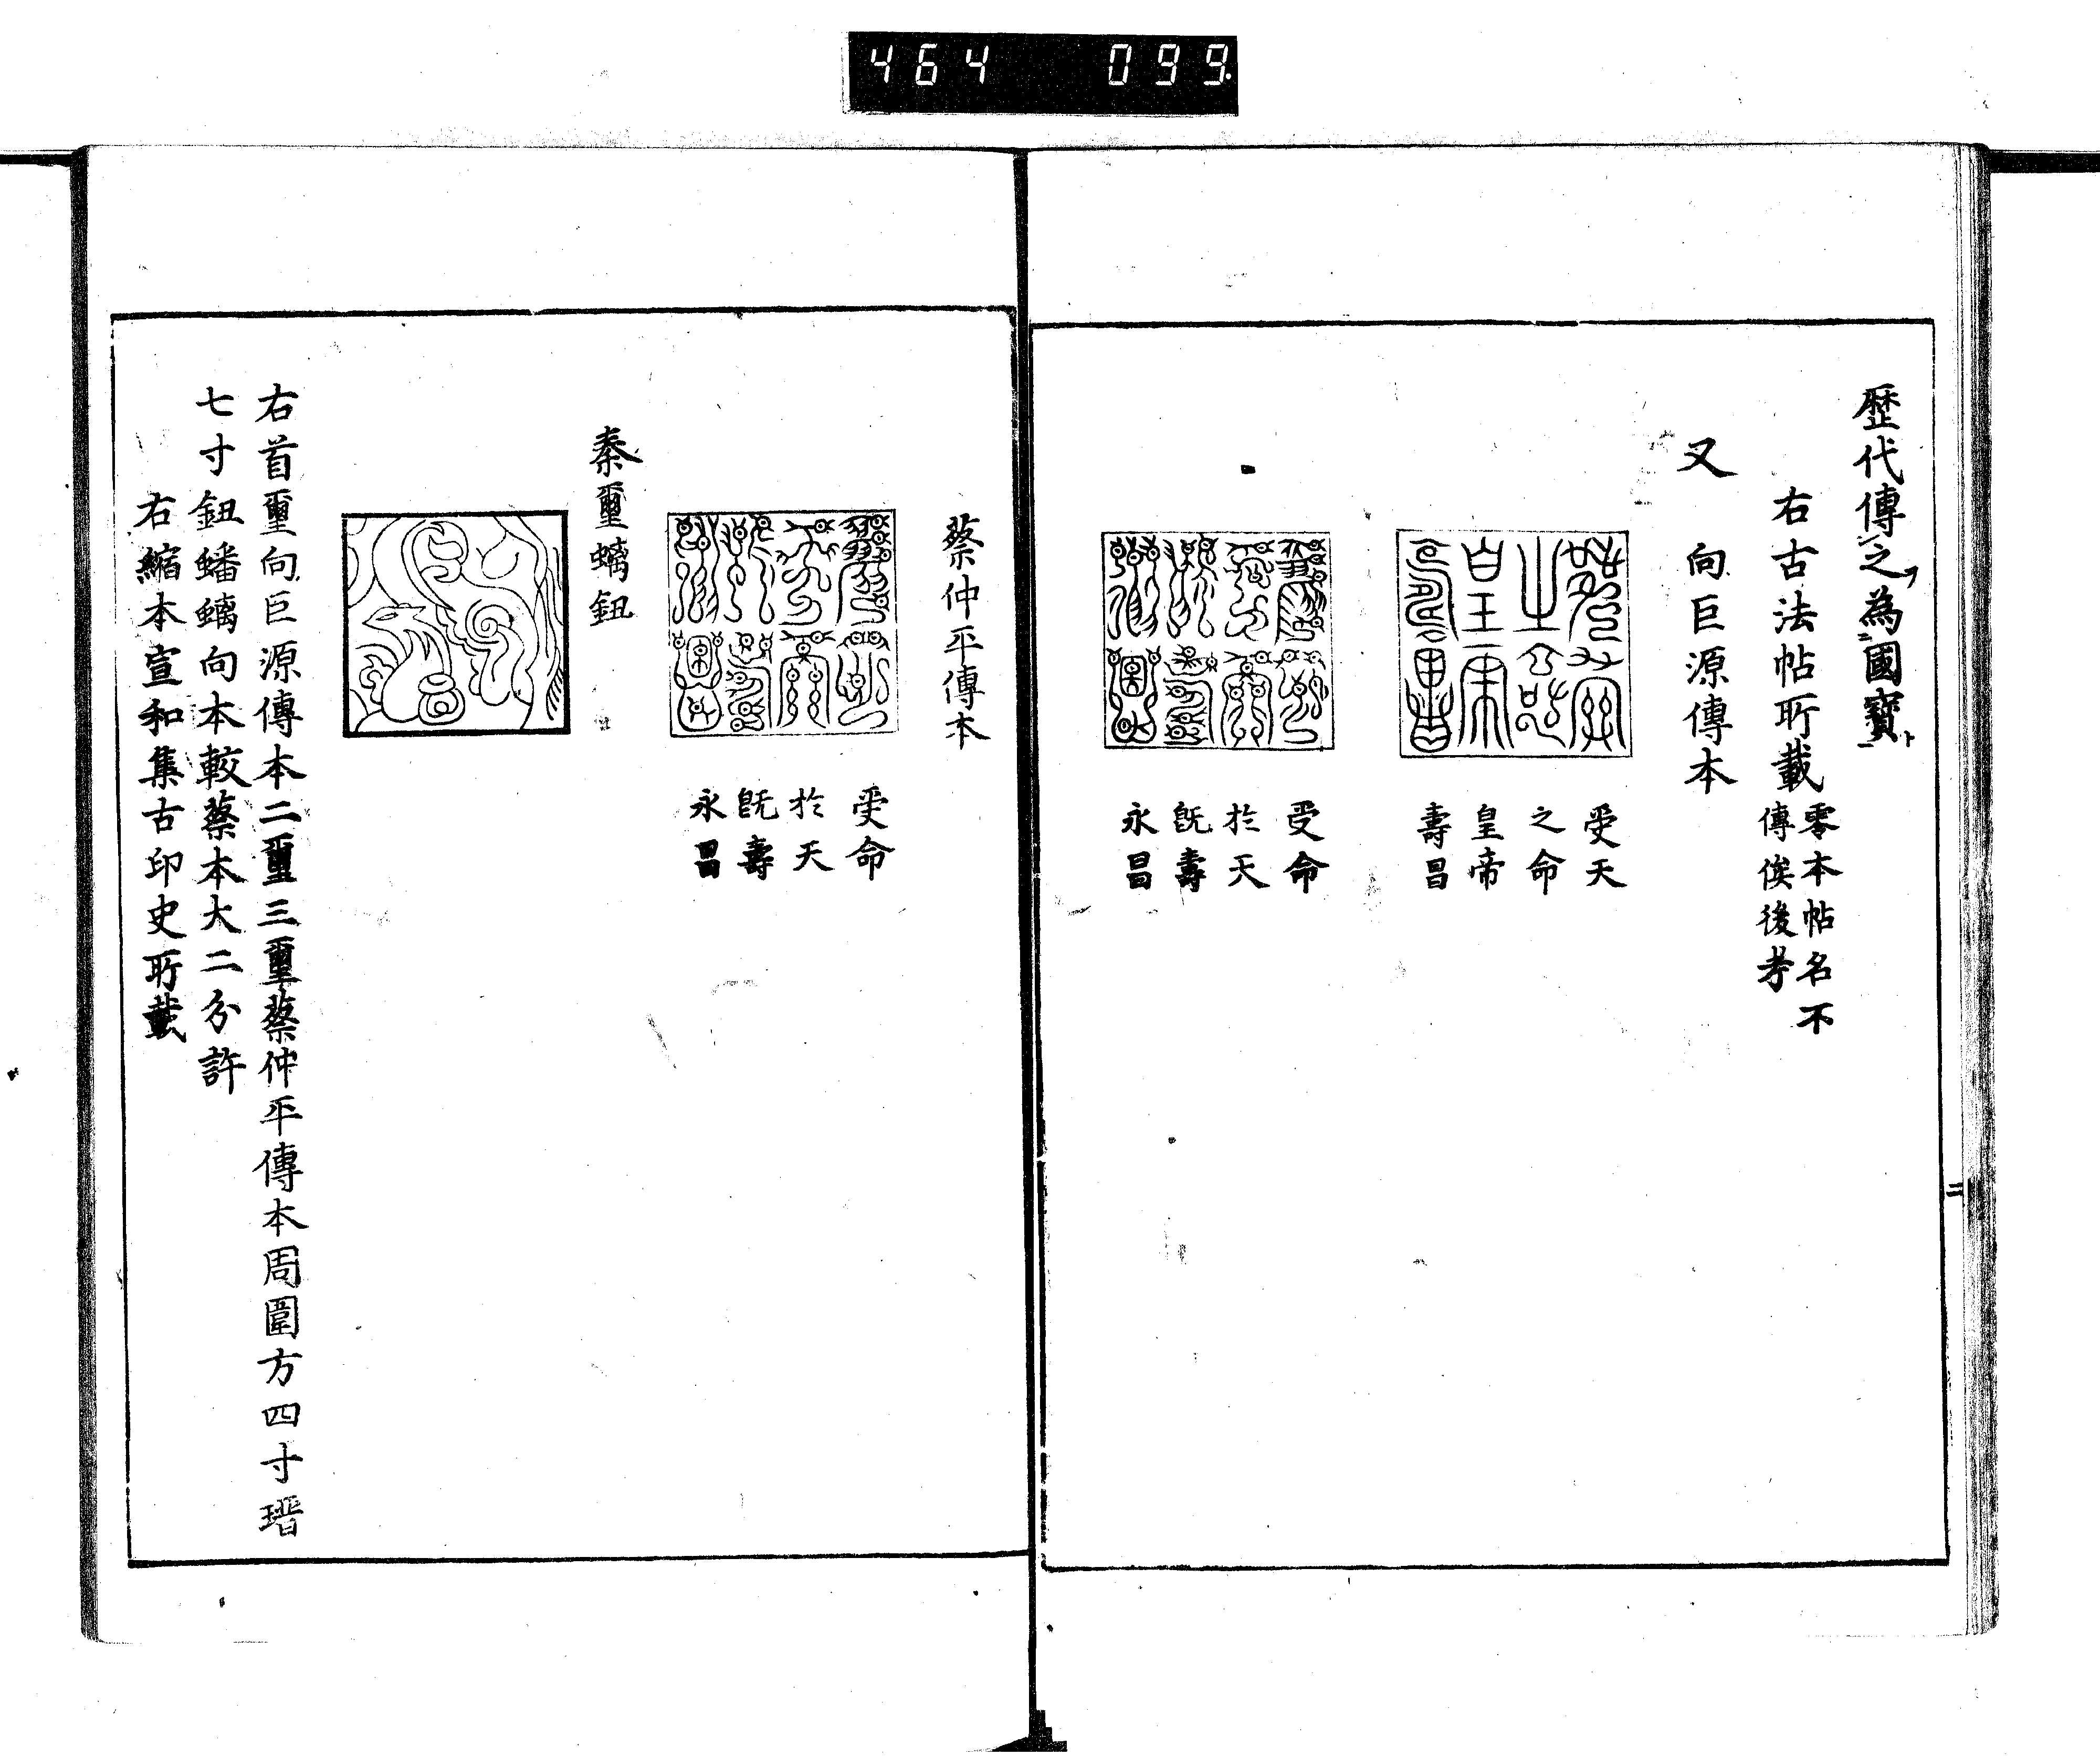 464 099
歴代傳之為國寶
右古法帖所載
零本帖名不
傳俟後考
又 向巨源傳本
受天
之命
皇帝
壽昌
受命
於天
既壽
永昌
蔡仲平傳本
受命
於天
既壽
永昌
秦璽螭鈕
右首璽向巨源傳本二璽三璽蔡仲平傳本周圍方四寸璔
七寸鈕蟠螭向本較蔡本大二分許
右縮本宣和集古印史所載